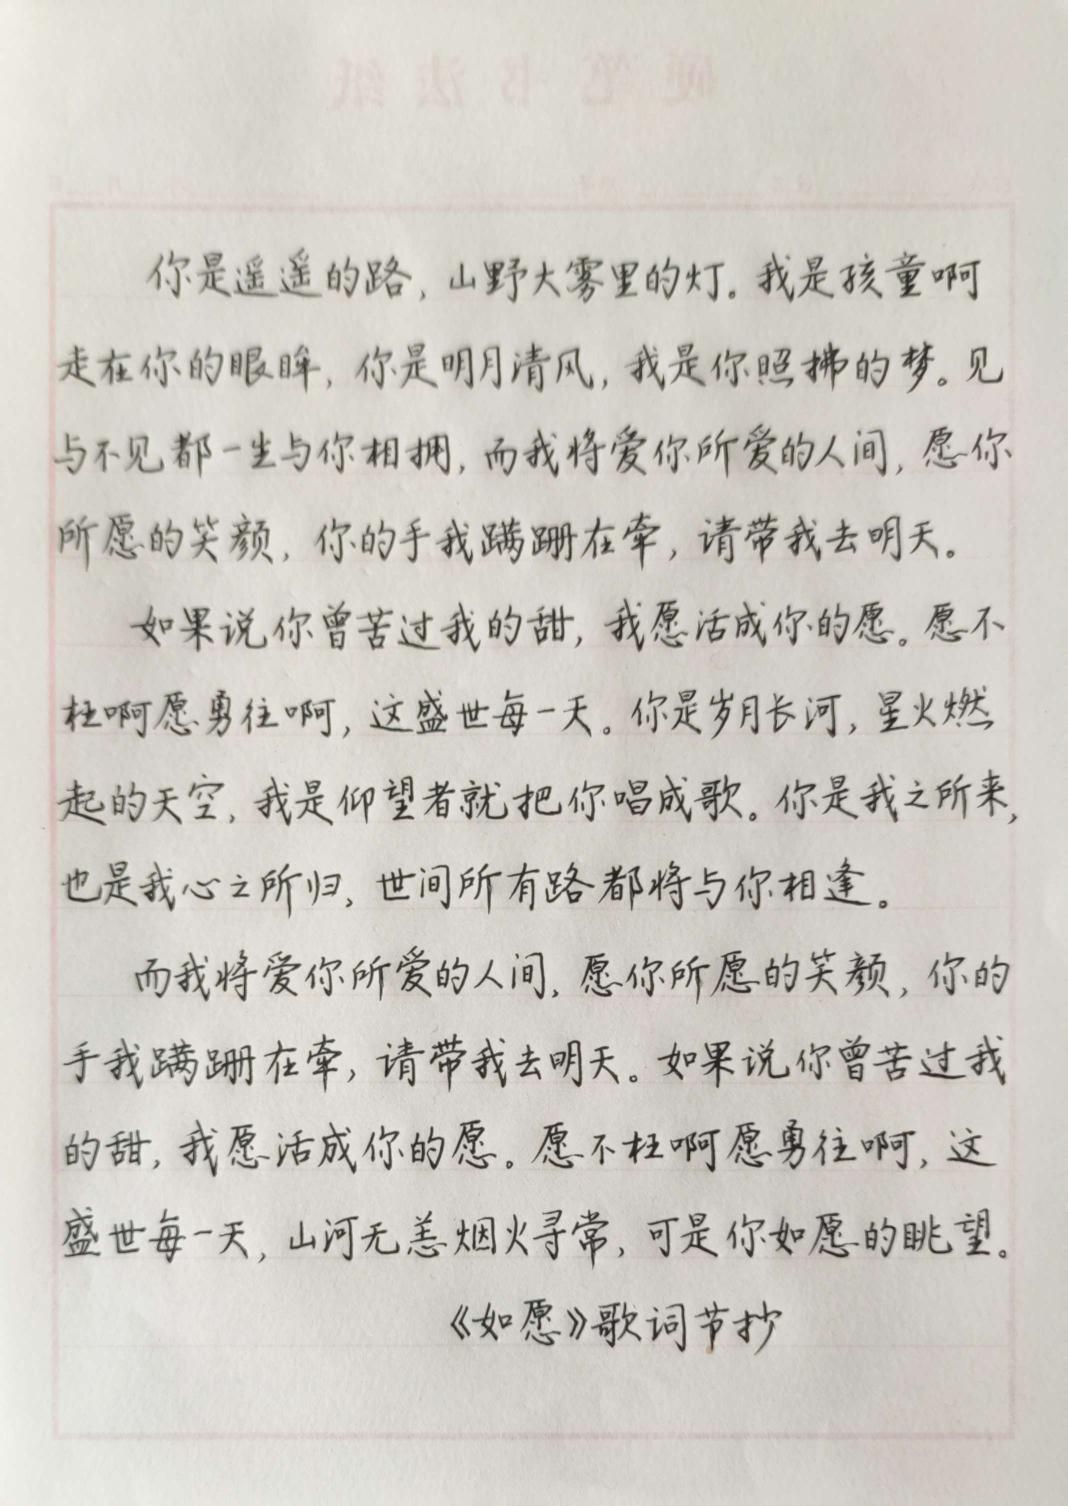 硬笔书法纸
你是遥遥的路，山野大雾里的灯。我是孩童啊
走在你的眼眸，你是明月清风，我是你照拂的梦。见
与不见都一生与你相拥，而我将爱你所爱的人间，愿你
所愿的笑颜，你的手我蹒跚在牵，请带我去明天。
如果说你曾苦过我的甜，我愿活成你的愿。愿不
枉啊愿勇往啊，这盛世每一天。你是岁月长河，星火燃
起的天空，我是仰望者就把你唱成歌。你是我之所来，
也是我心之所归，世间所有路都将与你相逢。
而我将爱你所爱的人间，愿你所愿的笑颜，你的
手我蹒跚在牵，请带我去明天。如果说你曾苦过我
的甜，我愿活成你的愿。愿不枉啊愿勇往啊，这
盛世每一天，山河无恙烟火寻常，可是你如愿的眺望。
《如愿》歌词节抄